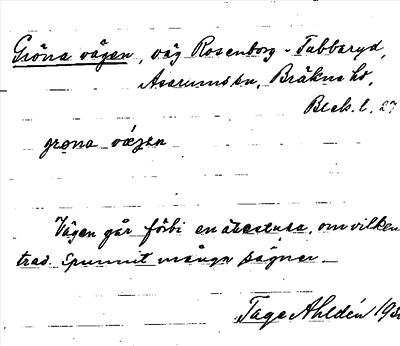 Gröna vägen, väg Rosenborg - Tubbaryd,
Asarums sn, Bräkne hd,
Blek. l. 27
grøna vægen
Vägen går förbi en ättestupa, om vilken
trad. spunnit många sägner.
Tage Ahldén 19